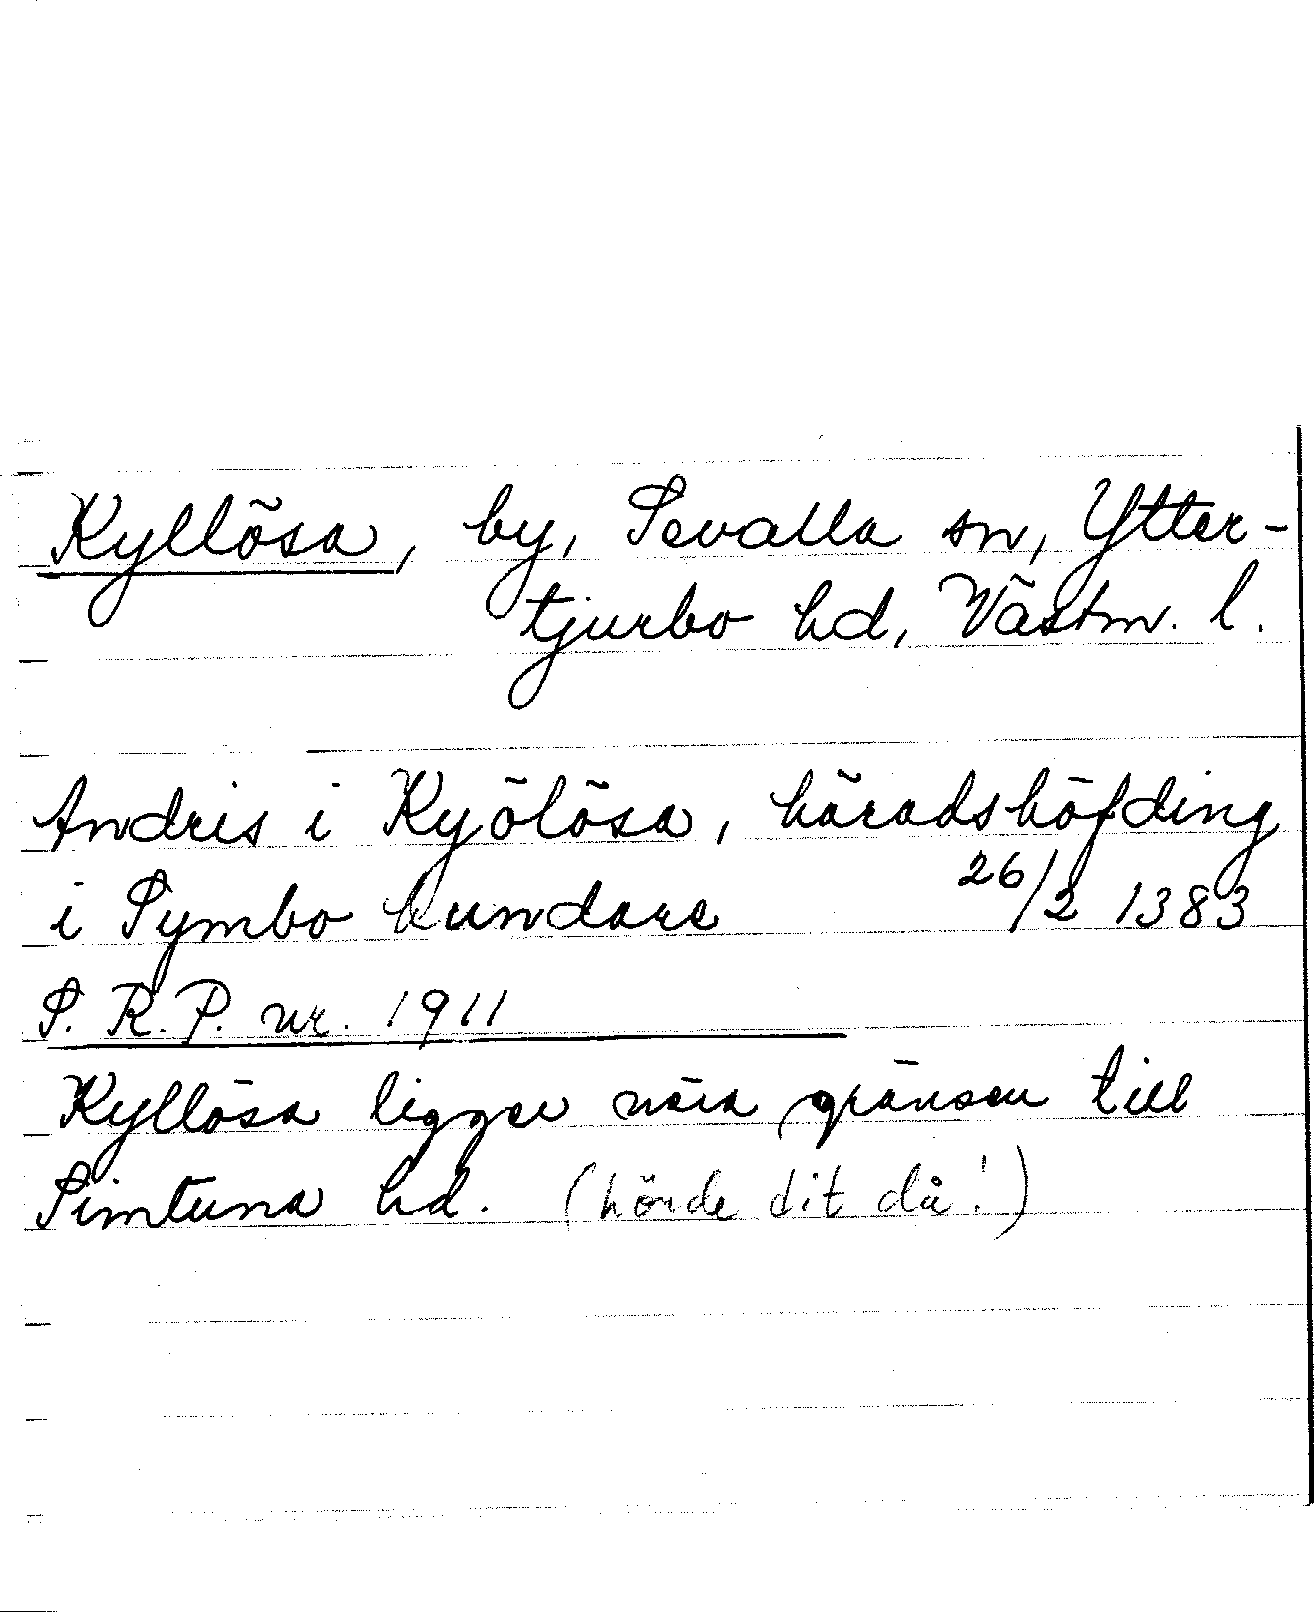 Kyllösa, by, Sevalla sn, Ytter-
tjurbo hd, Västm. l.
Andris i Kyölösa, häradshöfding
i Symbo hundare 26/2 1383
S. R. P. nr. 1911
Kyllösa ligger nära gränsen till
Simtuna hd. (hörde dit då!)